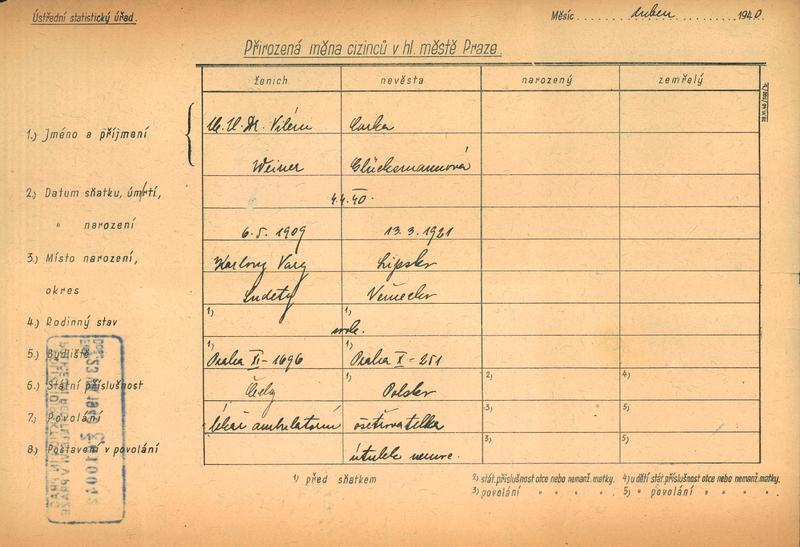 Ústřední statistický úřad.
Měsíc duben 1940.
Přirozená měna cizinců v hl. městě Praze.
ženich nevěsta narozený zemřelý
1.) Jméno a příjmení
M. U. Dr. Vilém
Weiner Glücksmannová
2.) Datum sňatku, úmrtí, 4.4.40.
" narození 6.5.1909 13.3.1921
3.) Místo narození, Karlovy Vary Lipsko
okres Sudety Německo
4.) Rodinný stav 1) 1) svob.
5.) Bydliště 1) Praha XI-1696 1) Praha X-251
6.) Státní příslušnost Čechy 1) Polsko 2) 4)
7.) Povolání lékař ambulatorní ošetřovatelka 3) 5)
8.) Postavení v povolání útulek 3) 5)
1) před sňatkem
2) stát. příslušnost otce nebo nemanž. matky. 4) u dětí stát. příslušnost otce nebo nemanž. matky.
3) povolání " " " " 5) " povolání " " " "